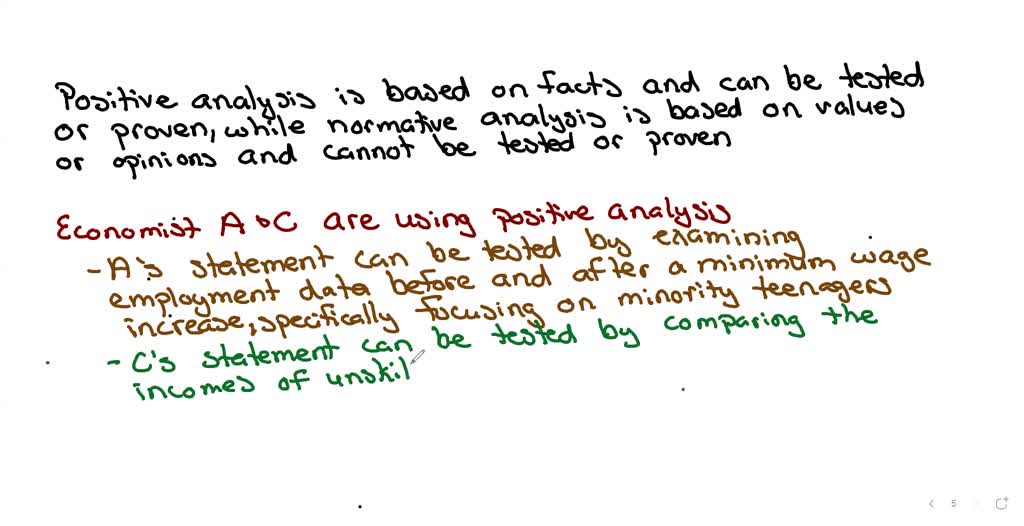 Positive analysis is based on facts and can be tested
or proven, while normative analysis is based on values
or opinions and cannot be tested or proven
Economist A & C are using positive analysis
- A's statement can be tested by examining
employment data before and after a minimum wage
increase, specifically focusing on minority teenagers
- C's statement can be tested by comparing the
incomes of unskil
5